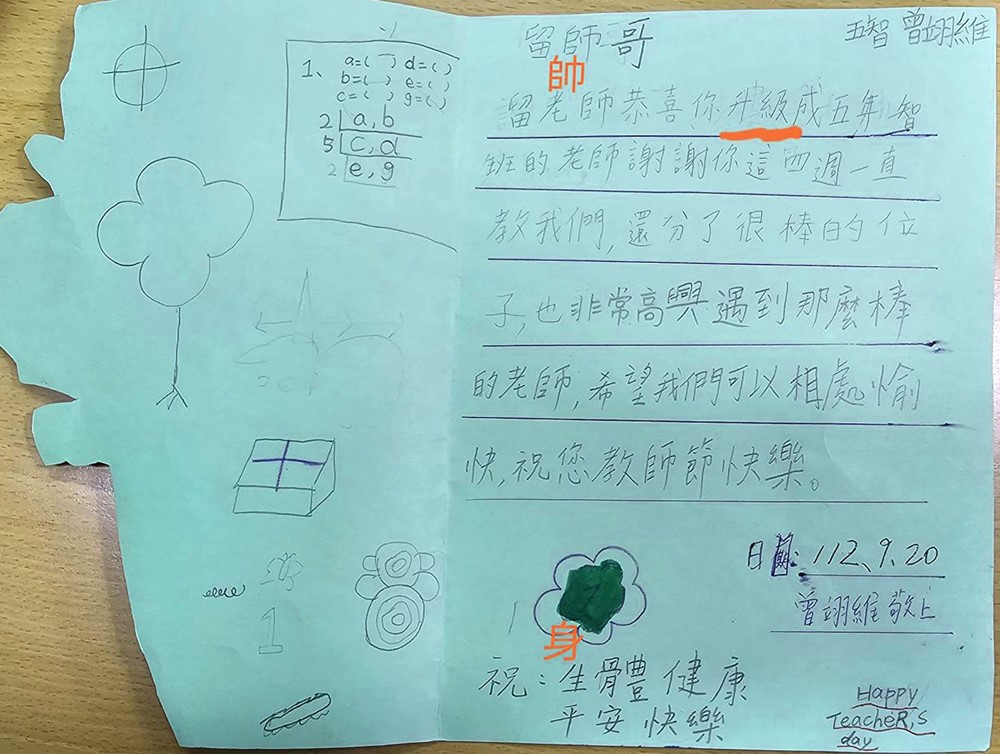 1、 a=( ) d=( )
b=( ) e=( )
c=( ) g=( )
2 a,b
5 c,d
2 e,g
1
五智 曾翊維
留師哥
帥
溜老師恭喜你升級成五年智
班的老師謝謝你這四週一直
教我們,還分了很棒的位
子,也非常高興遇到那麼棒
的老師,希望我們可以相處愉
快,祝您教師節快樂。
日期:112、9、20
曾翊維敬上
身
祝:生體健康
平安快樂
Happy
TeacheR,s
day